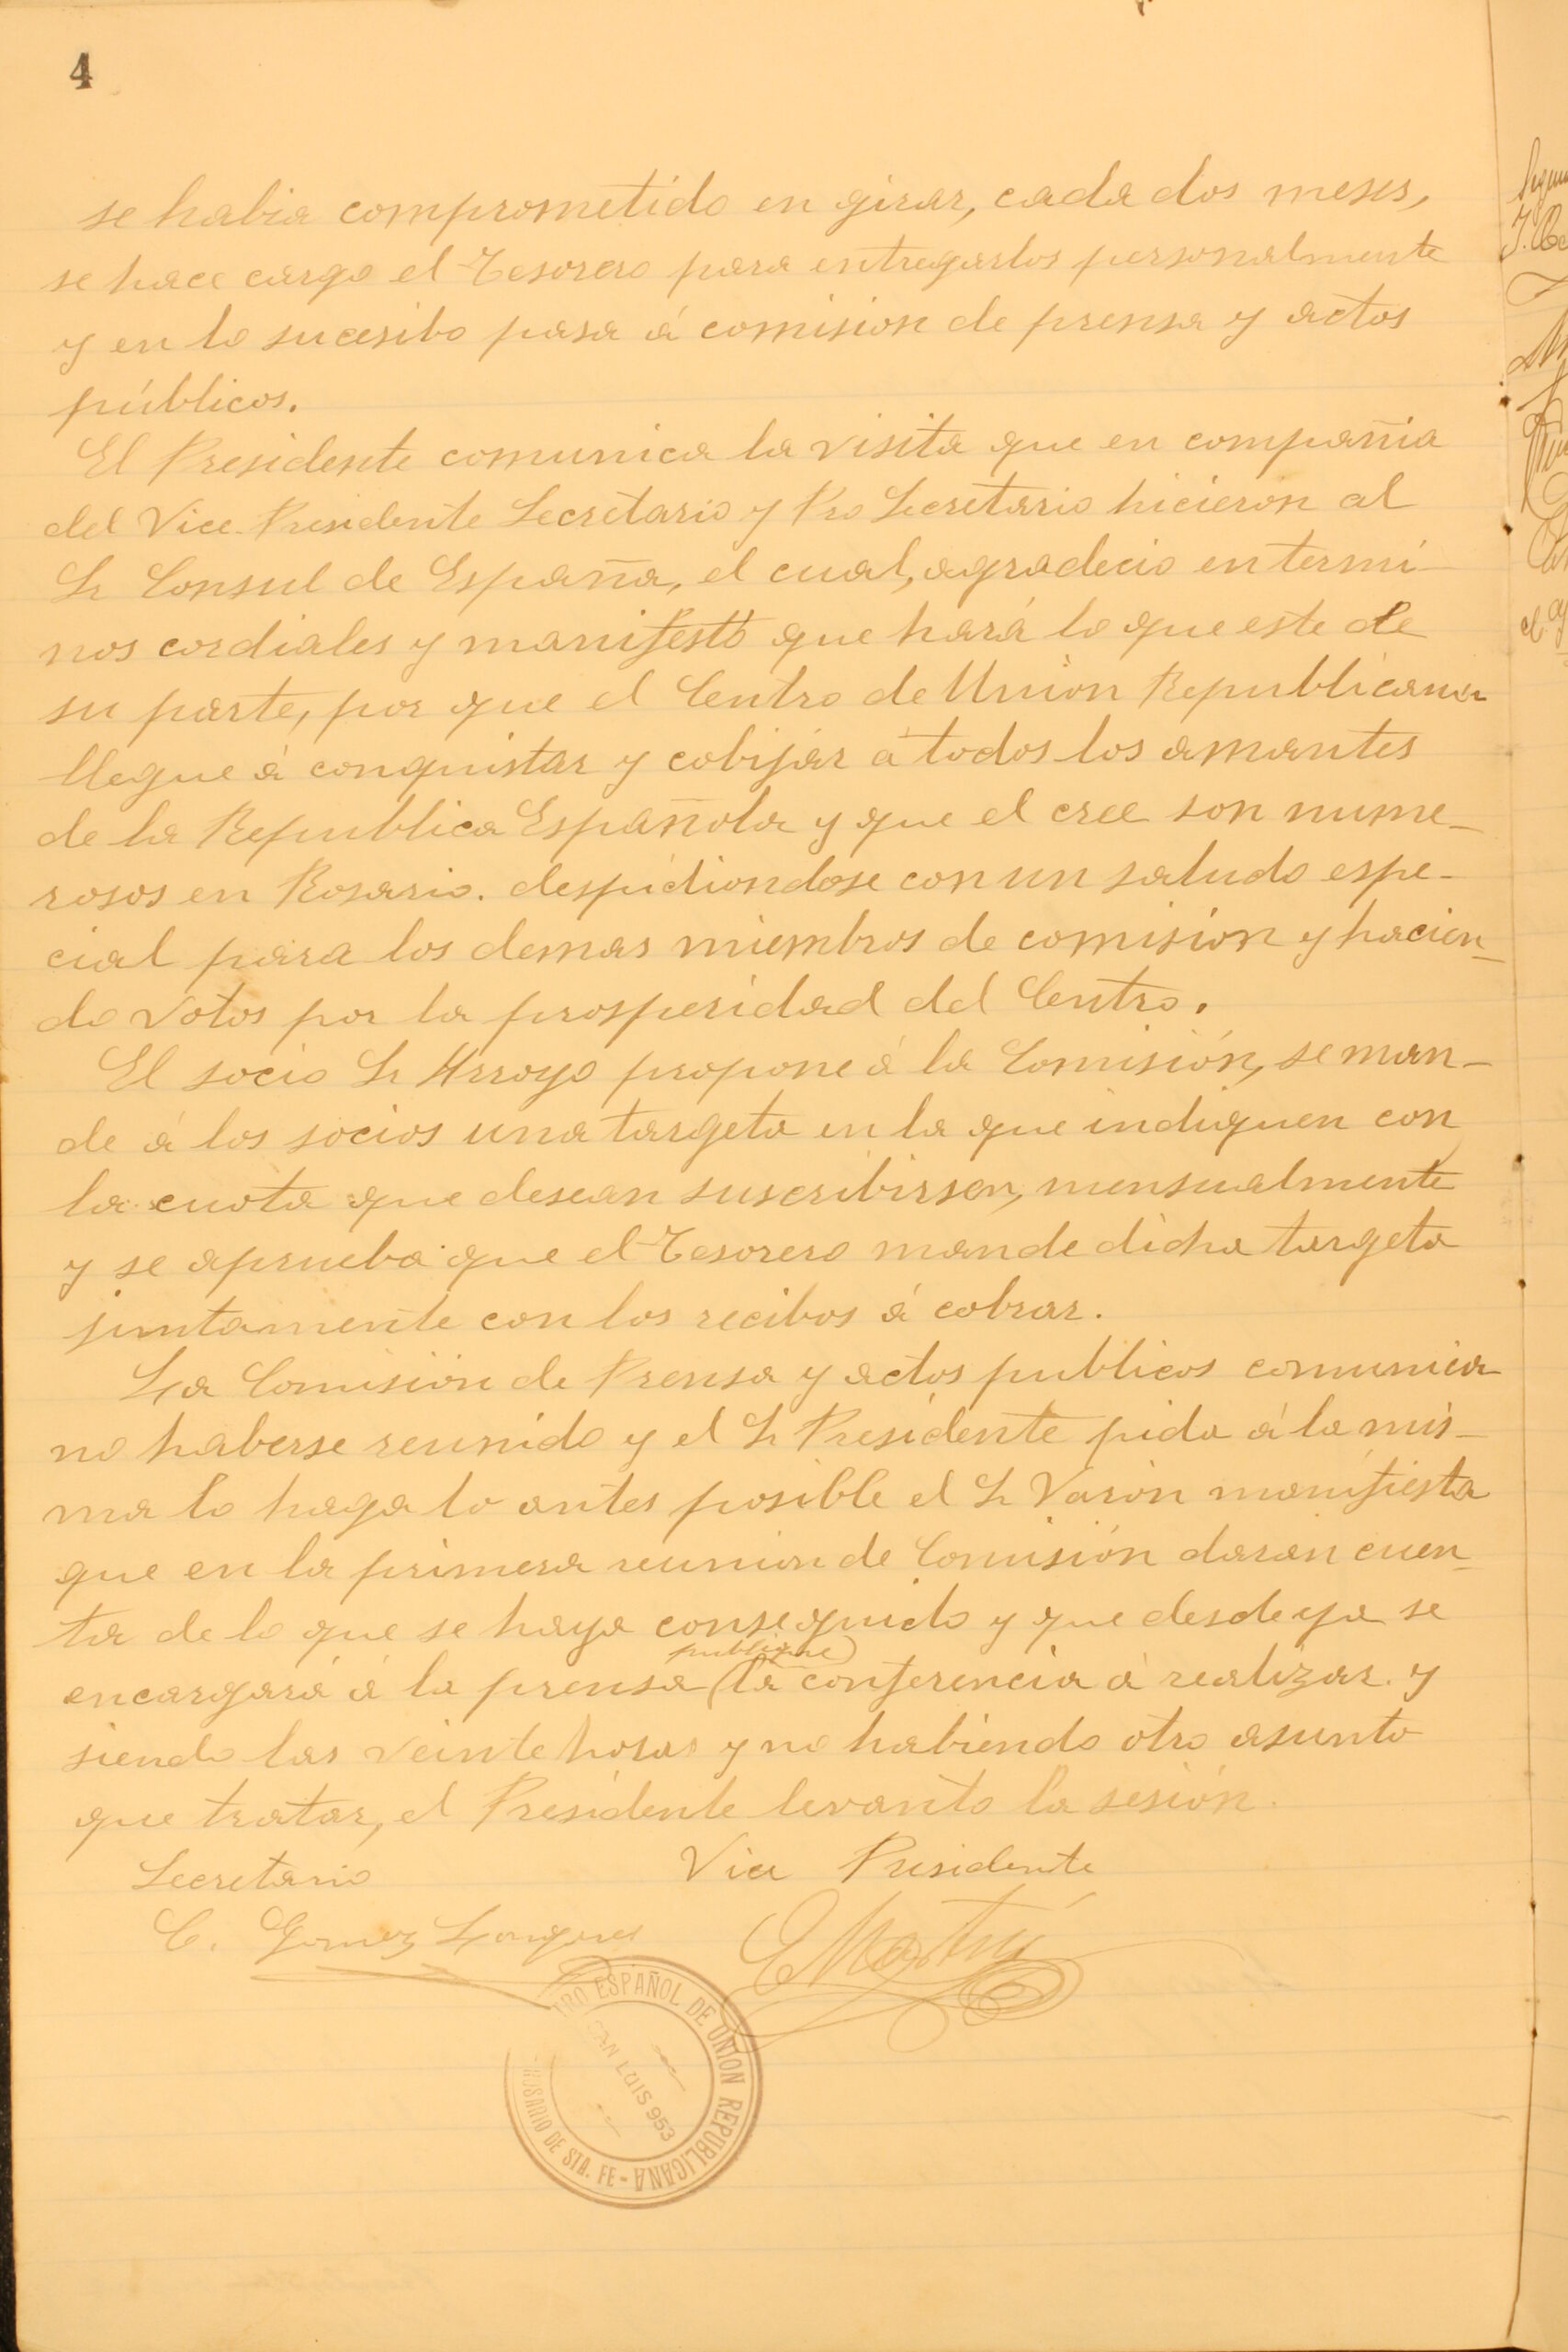 4
se habia comprometido en girar, cada dos meses,
se hace cargo el Tesorero para entregarlos personalmente
y en lo sucesibo pasa á comision de prensa y actos
públicos.
El Presidente comunica la visita que en compañia
del Vice-Presidente Secretario y Pro Secretario hicieron al
Sr Consul de España, el cual, agradecio en termi-
nos cordiales y manifestó que hará lo que este de
su parte, por que el Centro de Unión Republicana
llegue á conquistar y cobijár á todos los amantes
de la Republica Española y que el cree son nume-
rosos en Rosario. despidiondose con un saludo espe-
cial para los demas miembros de comisión y hacien-
do votos por la prosperidad del Centro.
El socio Sr Arroyo propone á la Comisión, se man-
de á los socios una targeta en la que indiquen con
la cuota que desean suscribirsen, mensualmente
y se aprueba que el Tesorero mande dicha targeta
juntamente con los recibos á cobrar.
La Comisión de Prensa y actos publicos comunica
no haberse reunido y el Sr Presidente pida á la mis-
ma lo haga lo antes posible el Sr Varón manifiesta
que en la primera reunion de Comisión darán cuen-
ta de lo que se haya conseguido y que desde ya se
publique
encargará á la prensa (la conferencia á realizar. y
siendo las veinte horas y no habiendo otro asunto
que tratar, el Presidente levanto la sesión.
Secretario Vice Presidente
C. Gomez
CENTRO ESPAÑOL DE UNION REPUBLICANA - ROSARIO DE STA. FE -
SAN LUIS 953